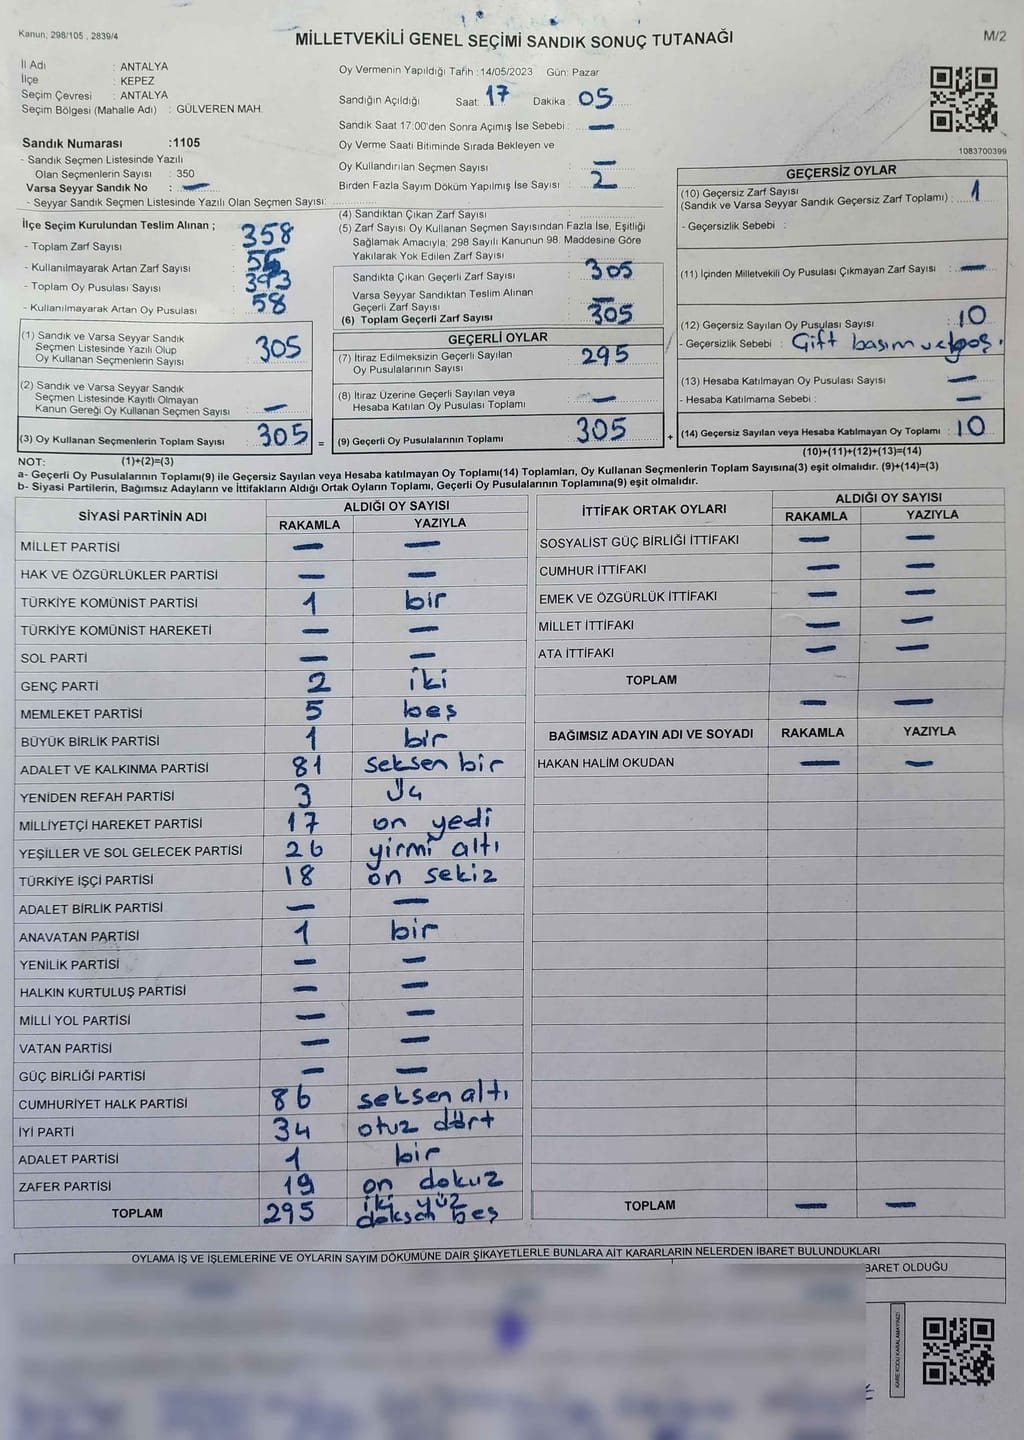 Kanun; 298/105 , 2839/4
MİLLETVEKİLİ GENEL SEÇİMİ SANDIK SONUÇ TUTANAĞI
M/2
İl Adı : ANTALYA
İlçe : KEPEZ
Seçim Çevresi : ANTALYA
Seçim Bölgesi (Mahalle Adı) : GÜLVEREN MAH.
Sandık Numarası :1105
- Sandık Seçmen Listesinde Yazılı
Olan Seçmenlerin Sayısı : 350
Varsa Seyyar Sandık No : —
- Seyyar Sandık Seçmen Listesinde Yazılı Olan Seçmen Sayısı:
Oy Vermenin Yapıldığı Tarih : 14/05/2023 Gün: Pazar
Sandığın Açıldığı Saat: 17 Dakika : 05
Sandık Saat 17:00'den Sonra Açımış İse Sebebi : —
Oy Verme Saati Bitiminde Sırada Bekleyen ve
Oy Kullandırılan Seçmen Sayısı : —
Birden Fazla Sayım Döküm Yapılmış İse Sayısı : 2
1083700399
İlçe Seçim Kurulundan Teslim Alınan ;
- Toplam Zarf Sayısı : 358
- Kullanılmayarak Artan Zarf Sayısı :
- Toplam Oy Pusulası Sayısı : 393
- Kullanılmayarak Artan Oy Pusulası : 58
(1) Sandık ve Varsa Seyyar Sandık
Seçmen Listesinde Yazılı Olup
Oy Kullanan Seçmenlerin Sayısı : 305
(2) Sandık ve Varsa Seyyar Sandık
Seçmen Listesinde Kayıtlı Olmayan
Kanun Gereği Oy Kullanan Seçmen Sayısı : —
(3) Oy Kullanan Seçmenlerin Toplam Sayısı : 305 =
(4) Sandıktan Çıkan Zarf Sayısı :
(5) Zarf Sayısı Oy Kullanan Seçmen Sayısından Fazla İse, Eşitliği
Sağlamak Amacıyla; 298 Sayılı Kanunun 98. Maddesine Göre
Yakılarak Yok Edilen Zarf Sayısı :
Sandıkta Çıkan Geçerli Zarf Sayısı : 305
Varsa Seyyar Sandıktan Teslim Alınan
Geçerli Zarf Sayısı : —
(6) Toplam Geçerli Zarf Sayısı : 305
GEÇERLİ OYLAR
(7) İtiraz Edilmeksizin Geçerli Sayılan
Oy Pusulalarının Sayısı : 295
(8) İtiraz Üzerine Geçerli Sayılan veya
Hesaba Katılan Oy Pusulası Toplamı : —
(9) Geçerli Oy Pusulalarının Toplamı : 305 +
GEÇERSİZ OYLAR
(10) Geçersiz Zarf Sayısı
(Sandık ve Varsa Seyyar Sandık Geçersiz Zarf Toplamı) : 1
- Geçersizlik Sebebi :
(11) İçinden Milletvekili Oy Pusulası Çıkmayan Zarf Sayısı : —
(12) Geçersiz Sayılan Oy Pusulası Sayısı : 10
- Geçersizlik Sebebi : Çift basım ve boş.
(13) Hesaba Katılmayan Oy Pusulası Sayısı : —
- Hesaba Katılmama Sebebi : —
(14) Geçersiz Sayılan veya Hesaba Katılmayan Oy Toplamı : 10
(10)+(11)+(12)+(13)=(14)
NOT: (1)+(2)=(3)
a- Geçerli Oy Pusulalarının Toplamı(9) ile Geçersiz Sayılan veya Hesaba katılmayan Oy Toplamı(14) Toplamları, Oy Kullanan Seçmenlerin Toplam Sayısına(3) eşit olmalıdır. (9)+(14)=(3)
b- Siyasi Partilerin, Bağımsız Adayların ve İttifakların Aldığı Ortak Oyların Toplamı, Geçerli Oy Pusulalarının Toplamına(9) eşit olmalıdır.
SİYASİ PARTİNİN ADI ALDIĞI OY SAYISI
RAKAMLA YAZIYLA
MİLLET PARTİSİ — —
HAK VE ÖZGÜRLÜKLER PARTİSİ — —
TÜRKİYE KOMÜNİST PARTİSİ 1 bir
TÜRKİYE KOMÜNİST HAREKETİ — —
SOL PARTİ — —
GENÇ PARTİ 2 iki
MEMLEKET PARTİSİ 5 beş
BÜYÜK BİRLİK PARTİSİ 1 bir
ADALET VE KALKINMA PARTİSİ 81 seksen bir
YENİDEN REFAH PARTİSİ 3 üç
MİLLİYETÇİ HAREKET PARTİSİ 17 on yedi
YEŞİLLER VE SOL GELECEK PARTİSİ 26 yirmi altı
TÜRKİYE İŞÇİ PARTİSİ 18 on sekiz
ADALET BİRLİK PARTİSİ — —
ANAVATAN PARTİSİ 1 bir
YENİLİK PARTİSİ — —
HALKIN KURTULUŞ PARTİSİ — —
MİLLİ YOL PARTİSİ — —
VATAN PARTİSİ — —
GÜÇ BİRLİĞİ PARTİSİ — —
CUMHURİYET HALK PARTİSİ 86 seksen altı
İYİ PARTİ 34 otuz dört
ADALET PARTİSİ 1 bir
ZAFER PARTİSİ 19 on dokuz
TOPLAM 295 iki yüz
doksan beş
İTTİFAK ORTAK OYLARI ALDIĞI OY SAYISI
RAKAMLA YAZIYLA
SOSYALİST GÜÇ BİRLİĞİ İTTİFAKI — —
CUMHUR İTTİFAKI — —
EMEK VE ÖZGÜRLÜK İTTİFAKI — —
MİLLET İTTİFAKI — —
ATA İTTİFAKI — —
TOPLAM — —
BAĞIMSIZ ADAYIN ADI VE SOYADI RAKAMLA YAZIYLA
HAKAN HALİM OKUDAN — —
TOPLAM — —
OYLAMA İŞ VE İŞLEMLERİNE VE OYLARIN SAYIM DÖKÜMÜNE DAİR ŞİKAYETLERLE BUNLARA AİT KARARLARIN NELERDEN İBARET BULUNDUKLARI
BARET OLDUĞU
KAREKODU KARALAMAYINIZ!